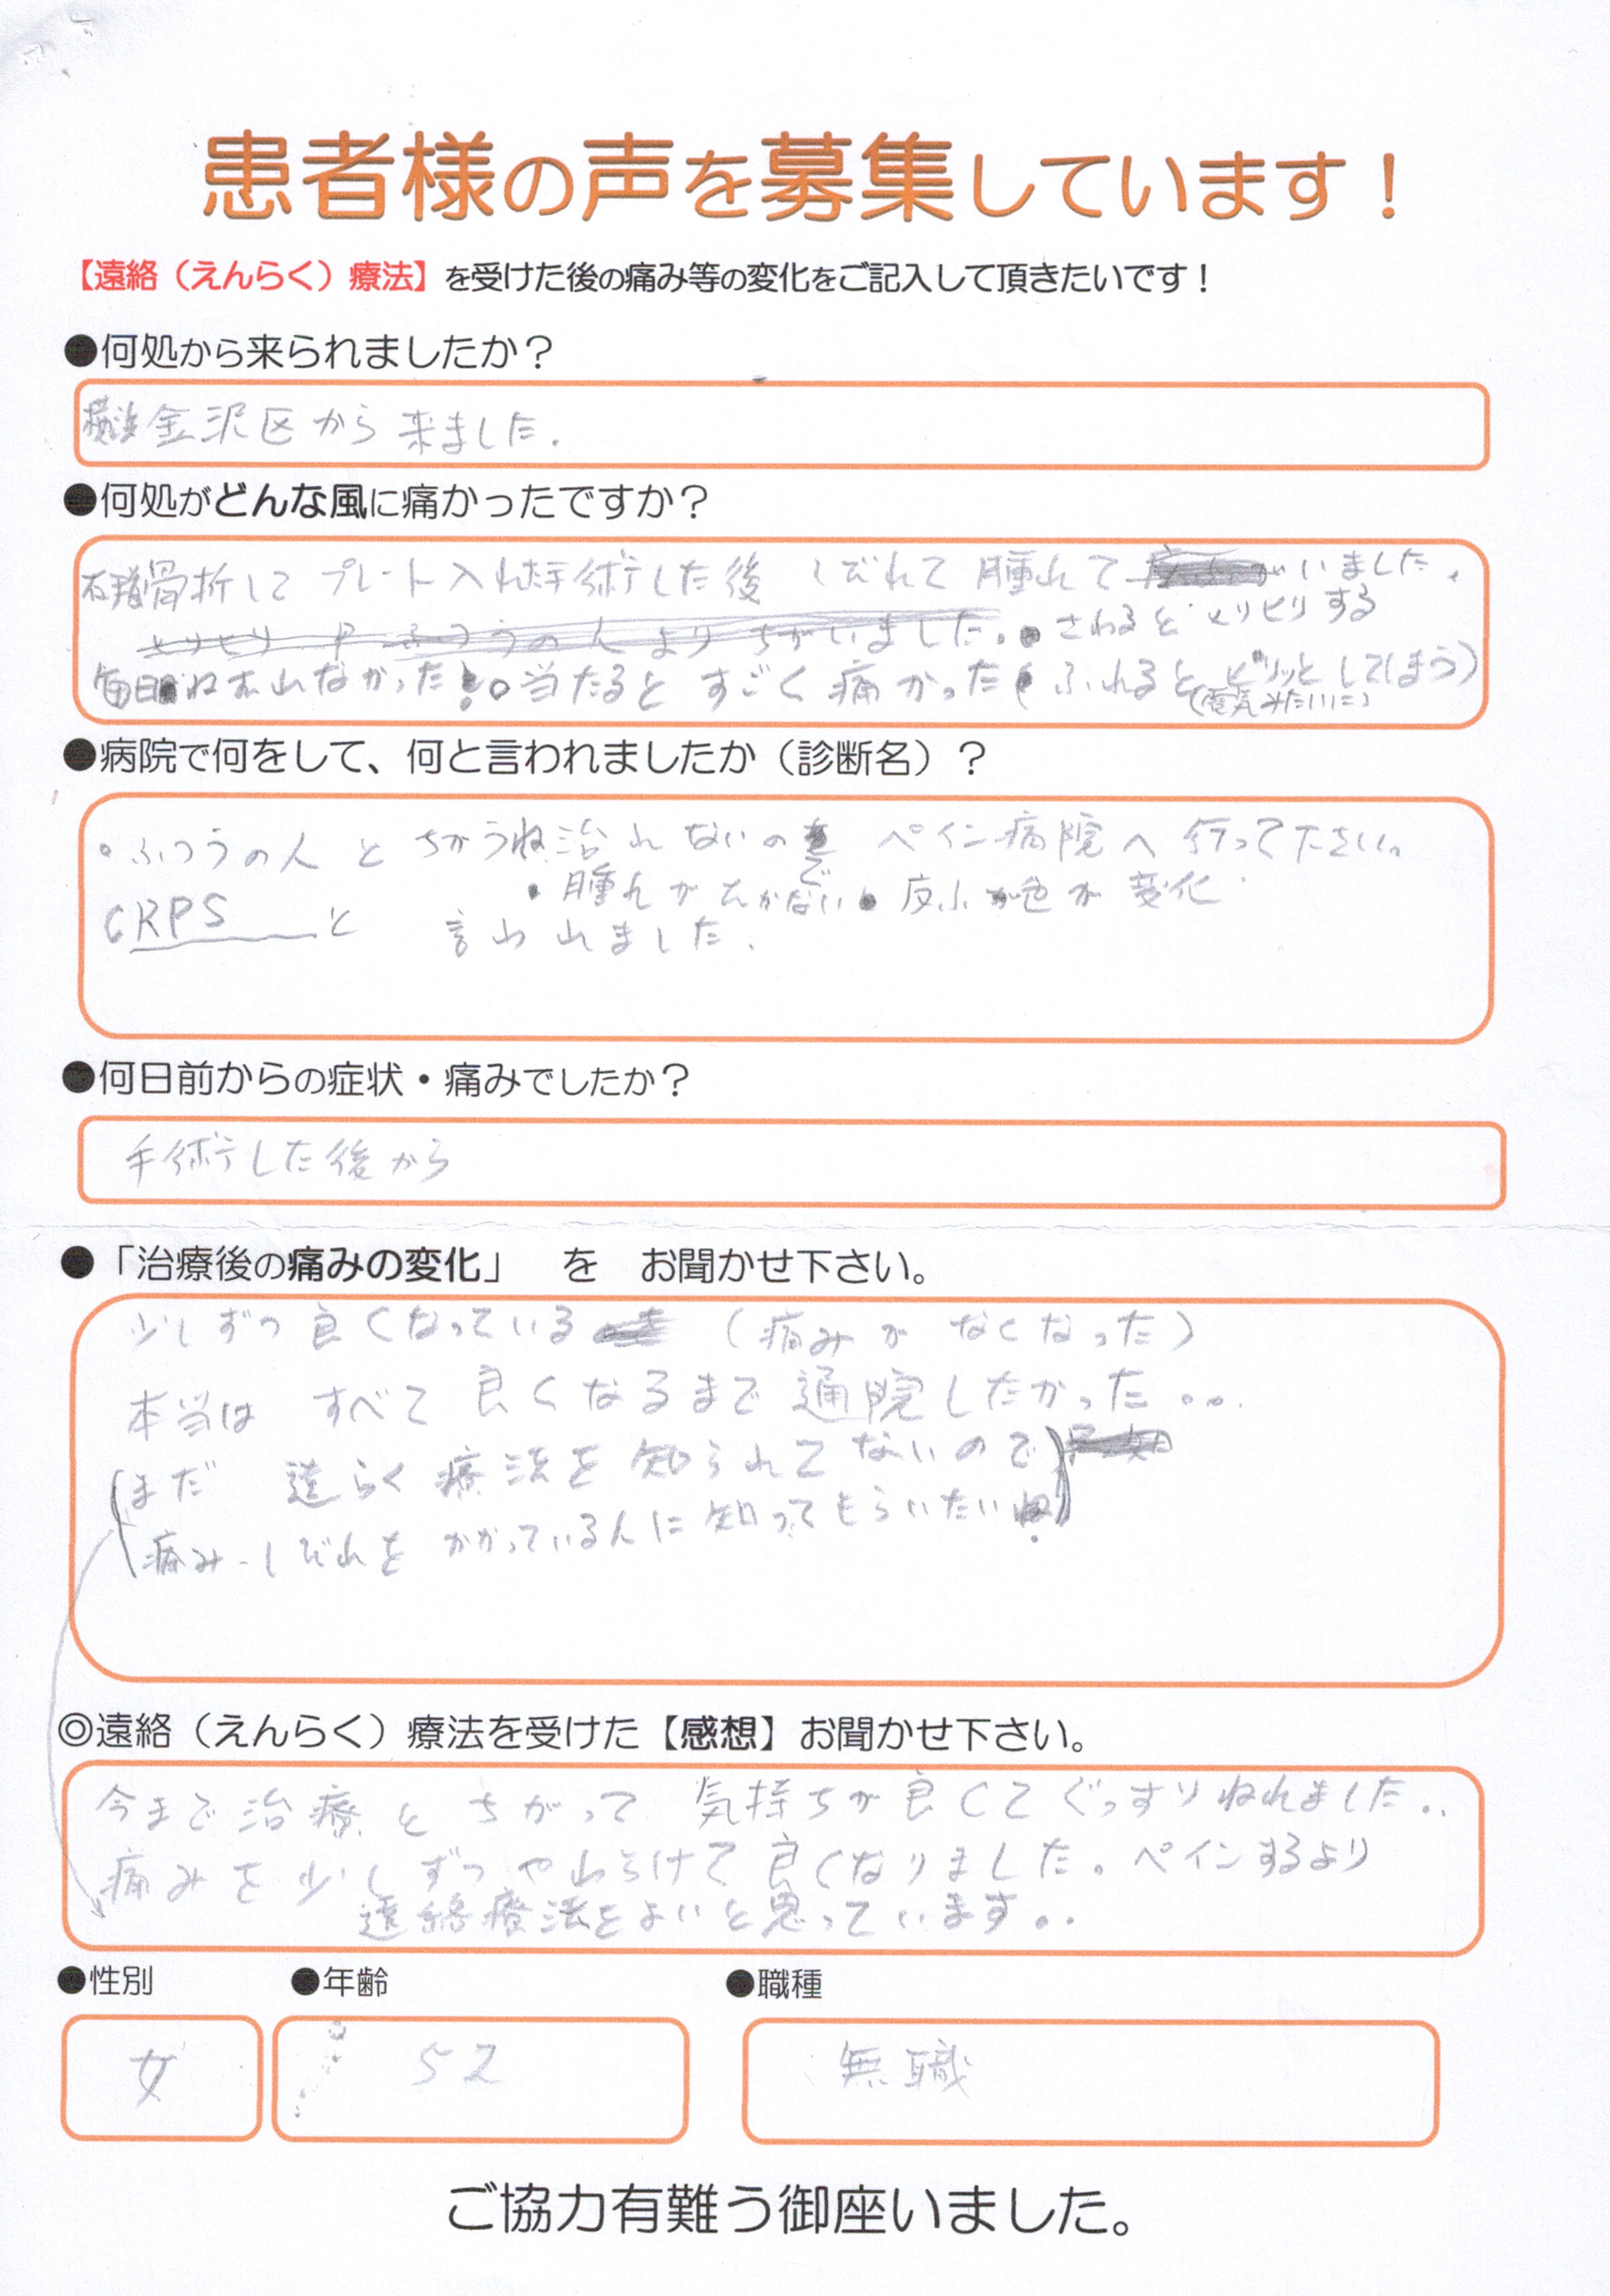 患者様の声を募集しています！
【遠絡（えんらく）療法】を受けた後の痛み等の変化をご記入して頂きたいです！
●何処から来られましたか？
横浜金沢区から来ました.
●何処がどんな風に痛かったですか？
骨折して プレート入れた手術した後 しびれて 腫れて いました。
さわると ヒリヒリする
毎日ねむれなかった! 当たると すごく痛かった ふれると ビリッと してしまう)
(電気みたいに)
●病院で何をして、何と言われましたか（診断名）？
ふつうの人 と ちがうね 治れ ないので ペイン病院へ 行って下さい。
・腫れ が ひかない ・皮ふ 色が 変化
CRPS と 言われました.
●何日前からの症状・痛みでしたか？
手術した後から
●「治療後の痛みの変化」 を お聞かせ下さい。
少しずつ良くなっている （痛みが なくなった）
本当は すべて 良くなるまで通院したかった...
まだ 遠らく療法を知られてないので
痛み-しびれを かかっている人に知ってもらいたい
◎遠絡（えんらく）療法を受けた【感想】お聞かせ下さい。
今まで治療と ちがって 気持ちが良くて ぐっすりねれました..
痛みを少しずつやわらげて良くなりました。ペインするより
遠絡療法をよいと思っています..
●性別 ●年齢 ●職種
女 52 無職
ご協力有難う御座いました。